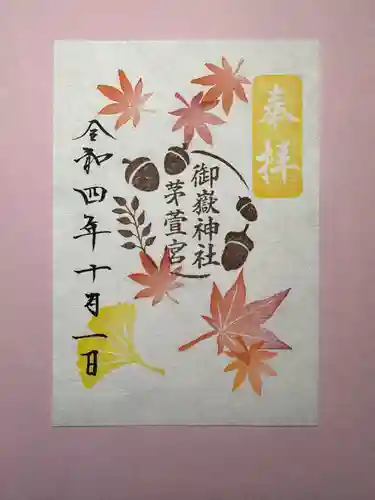 奉拝
御嶽神社
茅萱宮
令和四年十月一日